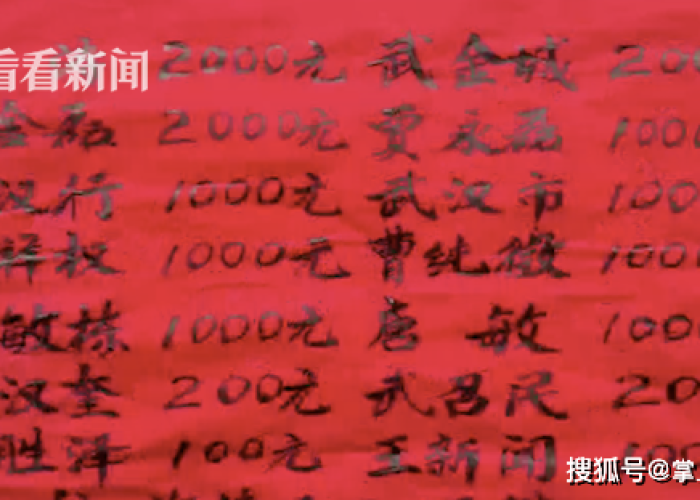 看看新闻
2000元 武金城 200
金磊 2000元 贾永磊 100
汉行 1000元 武汉市 100
权 1000元 曹纯 100
敏栋 1000元 唐敏 100
汉奎 200元 武召民 20
胜泽 100元 王新闻 100
搜狐号@掌